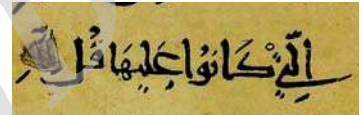 الَّتِيْ كَانُوْا عَلَيْهَا قُل لِّلَّهِ